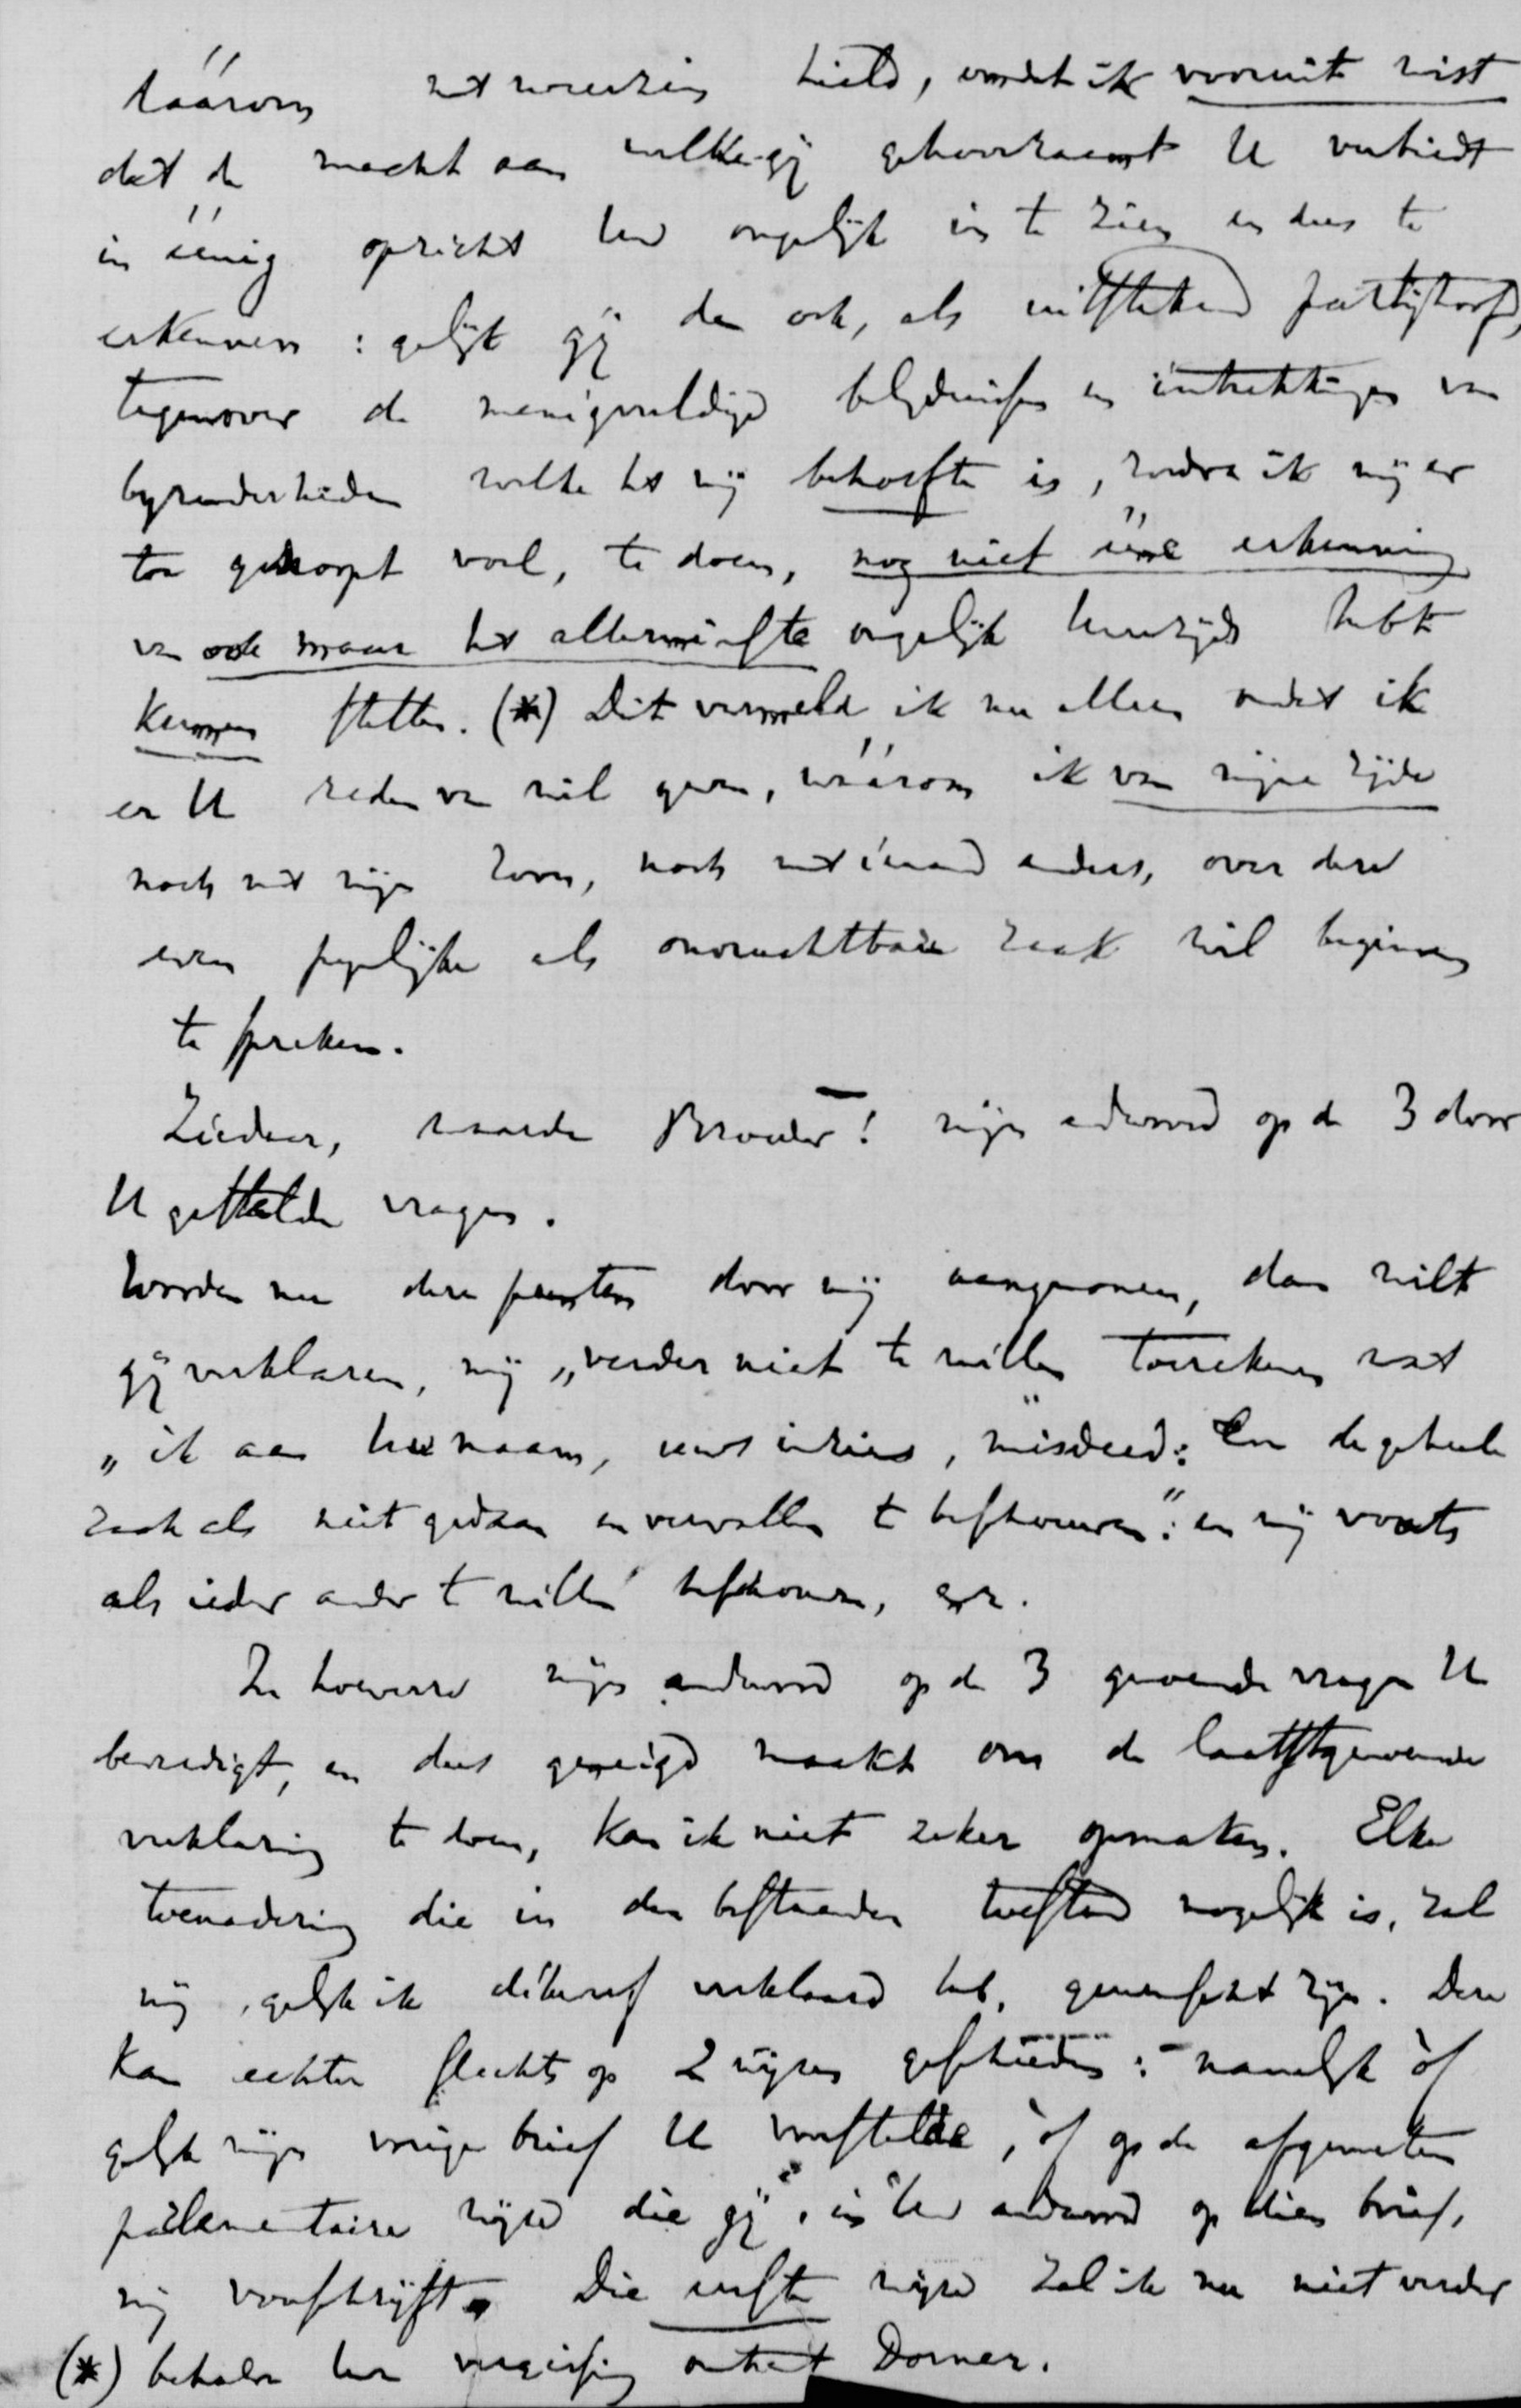 dáárom niet noodig hield, omdat ik vooruit wist
dat de macht aan welke gij gehoorzaamt U verbiedt
in éénig opzicht Uw ongelijk in te zien en dus te
erkennen: gelijk gij dan ook, als uitstekend
tegenover de menigvuldige belydenissen en intrekkingen van
byzonderheden welke het mij behoefte is, zoodra ik mij er
toe genoopt voel, te doen, nog niet ééne erkenning
van ook maar het allerminste ongelijk Uwerzijds hebt
kunnen stellen. (*) Dit vermeld ik nu alleen omdat ik
er U reden van wil geven, wáárom ik van mijne zijde
noch met mijn zoon, noch met iemand anders, over deze
even pynlijke als onvruchtbare zaak wil beginnen
te spreken.
Ziedaar, waarde Broeder! mijn antwoord op de 3 door
U gestelde vragen.
Worden nu deze punten door mij aangenomen, dan wilt
gij verklaren, mij „verder niet te willen toerekenen wat
„ik aan Uw naam, uws inziens, misdeed: En de geheele
zaak als niet gedaan en vervallen te beschouwen": en mij voorts
als ieder ander te willen beschouwen, enz.
In hoeverre mijn antwoord op de 3 genoemde vragen U
bevredigt, en dus geneigd maakt om de laatstgenoemde
verklaring te doen, kan ik niet zeker opmaken. Elke
toenadering die in den bestaanden toestand mogelijk is, zal
mij, gelijk ik dikwerf verklaard heb, gewenscht zijn. Deze
kan echter slechts op 2 wijzen geschieden: namelijk òf
gelijk mijn vorige brief U voorstelde, òf op de afgemeten
parlementaire wijze die gij, in Uw antwoord op dien brief,
mij voorschrijft. Die eerste wijze zal ik nu niet verder
(*) behalve Uw vergissing omtrent Dorner.